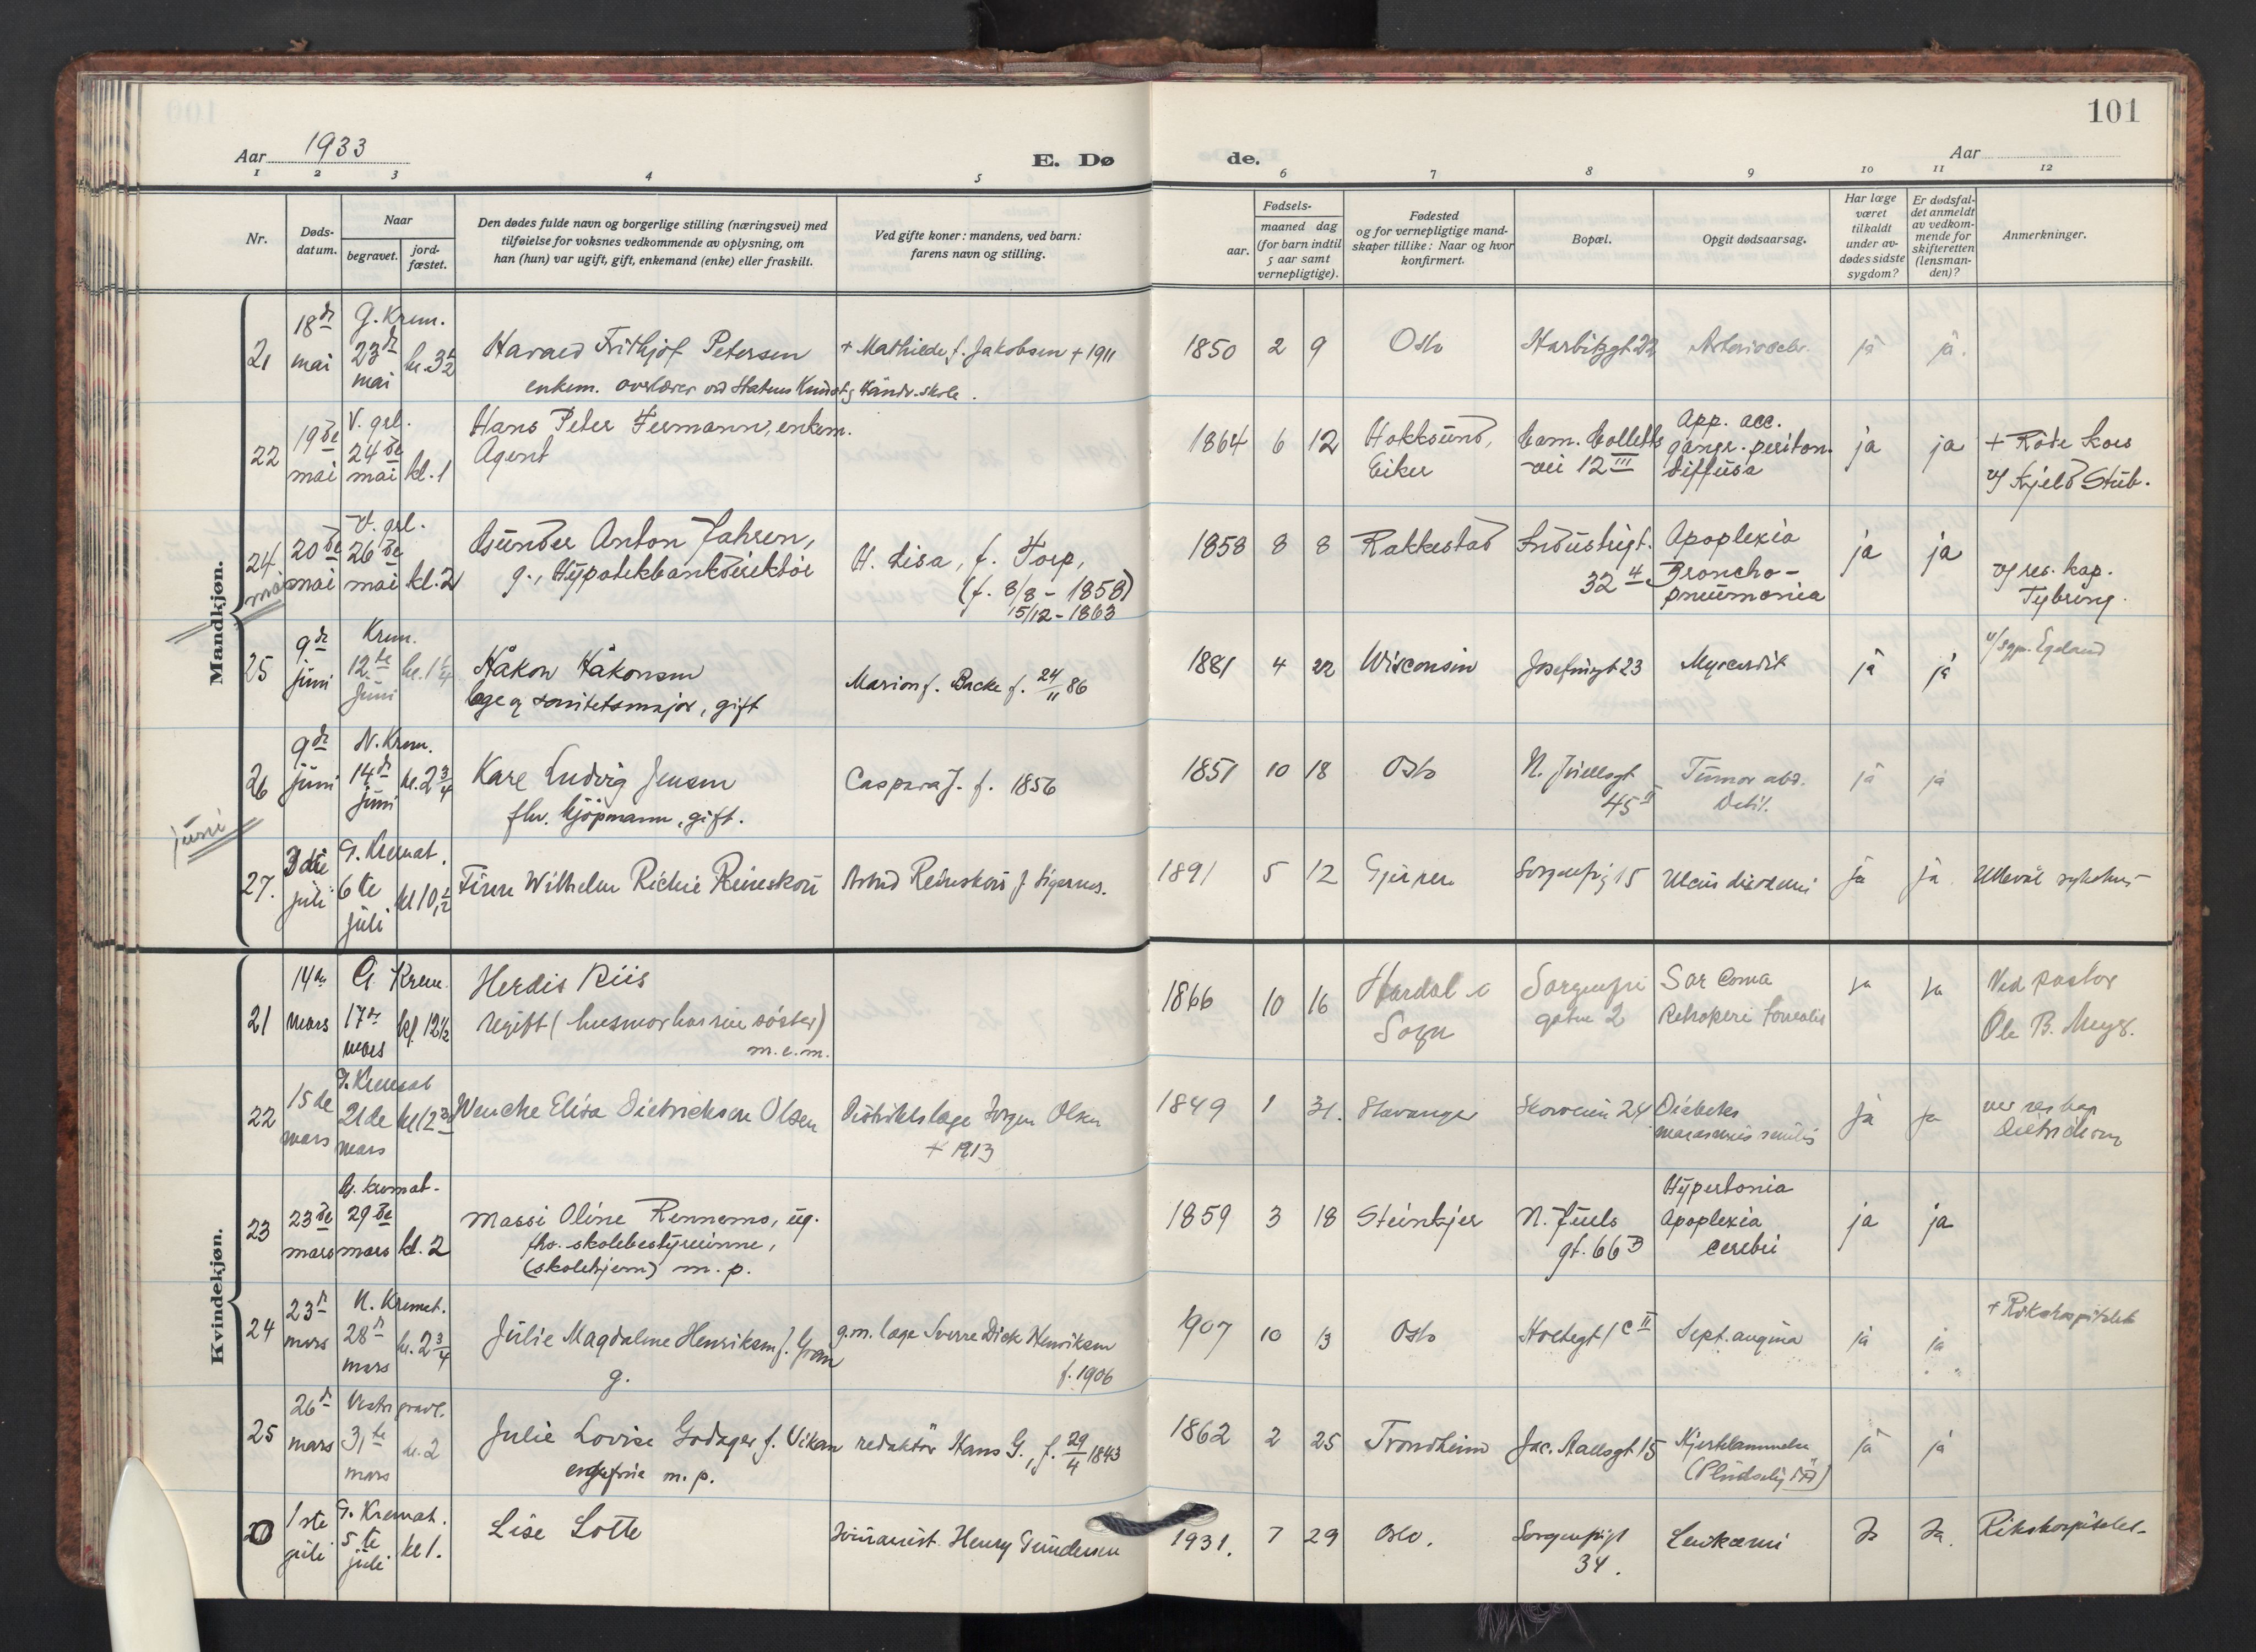 101
Aar 1933
E. Dø
de.
Aar
1 2 3 4 5 6 7 8 9 10 11 12
Nr.
Døds-
datum.
Naar
begravet.
jord-
fæstet.
Den dødes fulde navn og borgerlige stilling (næringsvei) med
tilføielse for voksnes vedkommende av oplysning, om
han (hun) var ugift, gift, enkemand (enke) eller fraskilt.
Ved gifte koner: mandens, ved barn:
farens navn og stilling.
Fødsels-
aar.
maaned dag
(for barn indtil
5 aar samt
vernepligtige).
Fødested
og for vernepligtige mand-
skaper tillike: Naar og hvor
konfirmert.
Bopæl.
Opgit dødsaarsag.
Har læge
været
tilkaldt
under av-
dødes sidste
sygdom?
Er dødsfal-
det anmeldt
av vedkom-
mende for
skifteretten
(lensman-
den)?
Anmerkninger.
Mandkjøn.
21
18de
mai
G. Krem.
23de
mai
kl. 3½
Harald Frithjof Petersen
enkem. overlærer ved Statens Kunst og Håndv. skole.
+ Mathilde f. Jakobsen + 1911
1850 2 9
Oslo
Harbitzgt 22
Arteriosclr.
ja
ja.
22
19de
mai
V. grl.
24de
mai
kl. 1
Hans Peter Hermann, enkem.
Agent
1864 6 12
Hokksund,
Eiker
Cam. Colletts
vei 12 III
App. acc.
gangr. periton.
diffusa
ja
ja
+ Røde Kors
v/ Kjeld Stub.
24
20de
mai
V. grl.
26de
mai
kl. 2
mai
Gunder Anton Jahren,
g., Hypotekbankdirektör
H. Lisa, f. Torp,
(f. 8/8 - 1858)
15/12 - 1863
1858 8 8
Rakkestad
Industrigt.
32 4
Apoplexia
Broncho-
pneumonia
ja
ja
v/ res. kap.
Tybring.
25
9de
juni
Krem.
12te
juni
kl. 1¼
Håkon Håkonsen
læge og sanitetsmajor, gift
Marion f. Backe f. 24/11 86
1881 4 22
Wisconsin
Josefinegt 23
Myocardit
ja
ja
v/ sgpr. Egeland
26
9de
juni
N. Krem.
14de
juni
kl. 2¾
Karl Ludvig Jensen
fhv. kjöpmann, gift.
Caspara J. f. 1856
1851 10 18
Oslo
N. Juelsgt
45 II
Tumor abd.
Debil.
ja
ja
juni
27.
3die
juli
G. Kremat.
6te
juli
kl 10,½
Finn Wilhelm Richie Reinskou
Astrid Reinskou f Sigernes.
1891 5 12
Gjerpen
Sorgenfrig 15
Ulcus duodeni
ja
ja.
Ullevål sykehus
Kvindekjøn.
21
14de
mars
G. Krem.
17de
mars
kl. 12½
Herdis Riis
Ugift (husmor hos sin söster)
m.e.m.
1866 10 16
Hardal i
Sogn
Sorgenfri
gaten 2
Sarcoma
Retroperitonealis
ja
ja
Ved pastor
Ole B. Meyer.
22
15de
mars
G. Kremat
21de
mars
kl 12¾
Wenche Elisa Dietrichson Olsen
Distriktslæge Jörgen Olsen
+ 1913
1849 1 31.
Stavanger
Skovveien 24
Diabetes
marasmus senilis
ja
ja
ved res kap
Dietrichson
23
23de
mars
G. kremat.
29de
mars
kl. 2
Massi Oline Rennemo, ug.
fhv. skolebestyrerinne,
(skolehjem) m. p.
1859 3 18
Steinkjer
N. Juels
gt. 66 B
Hypertonia
Apoplexia
cerebri
ja
ja
24
23de
mars
N. Kremat.
28de
mars
kl. 2¾
Julie Magdalene Henriksen f. Gran
g.
g.m. læge Sverre Dick Henriksen
f. 1906
1907 10 13
Oslo
Holtegt 1 C II
Sept. angina
ja
ja
+ Rikshospitalet
25
26de
mars
Vestre gravl.
31te
mars
kl. 2
Julie Lovise Godager f. Vikan
m. p.
redaktör Hans G., f. 29/4 1843
1862 2 25
Trondheim
Jac. Aallsgt 15
Hjertelammelse
(Plutselig död)
ja
ja
1ste
juli
G. Kremat.
5te
juli
kl 1.
Lise Lotte
Henry Gundersen
1931. 7 29
Oslo.
Sorgenfrigt
34.
Leukæmi
Ja
Ja.
Rikshospitalet